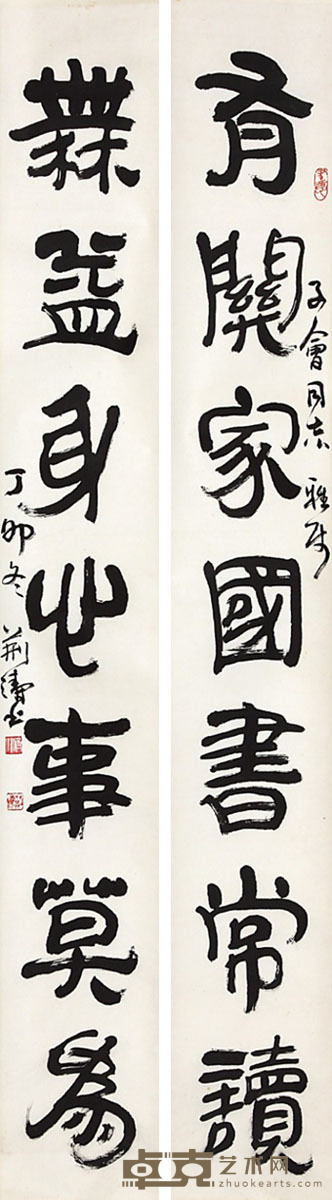 有關家國書常讀
子會同志雅属
無益身心事莫為
丁卯冬荆濤书
卓克艺术网
zhuokearts.com